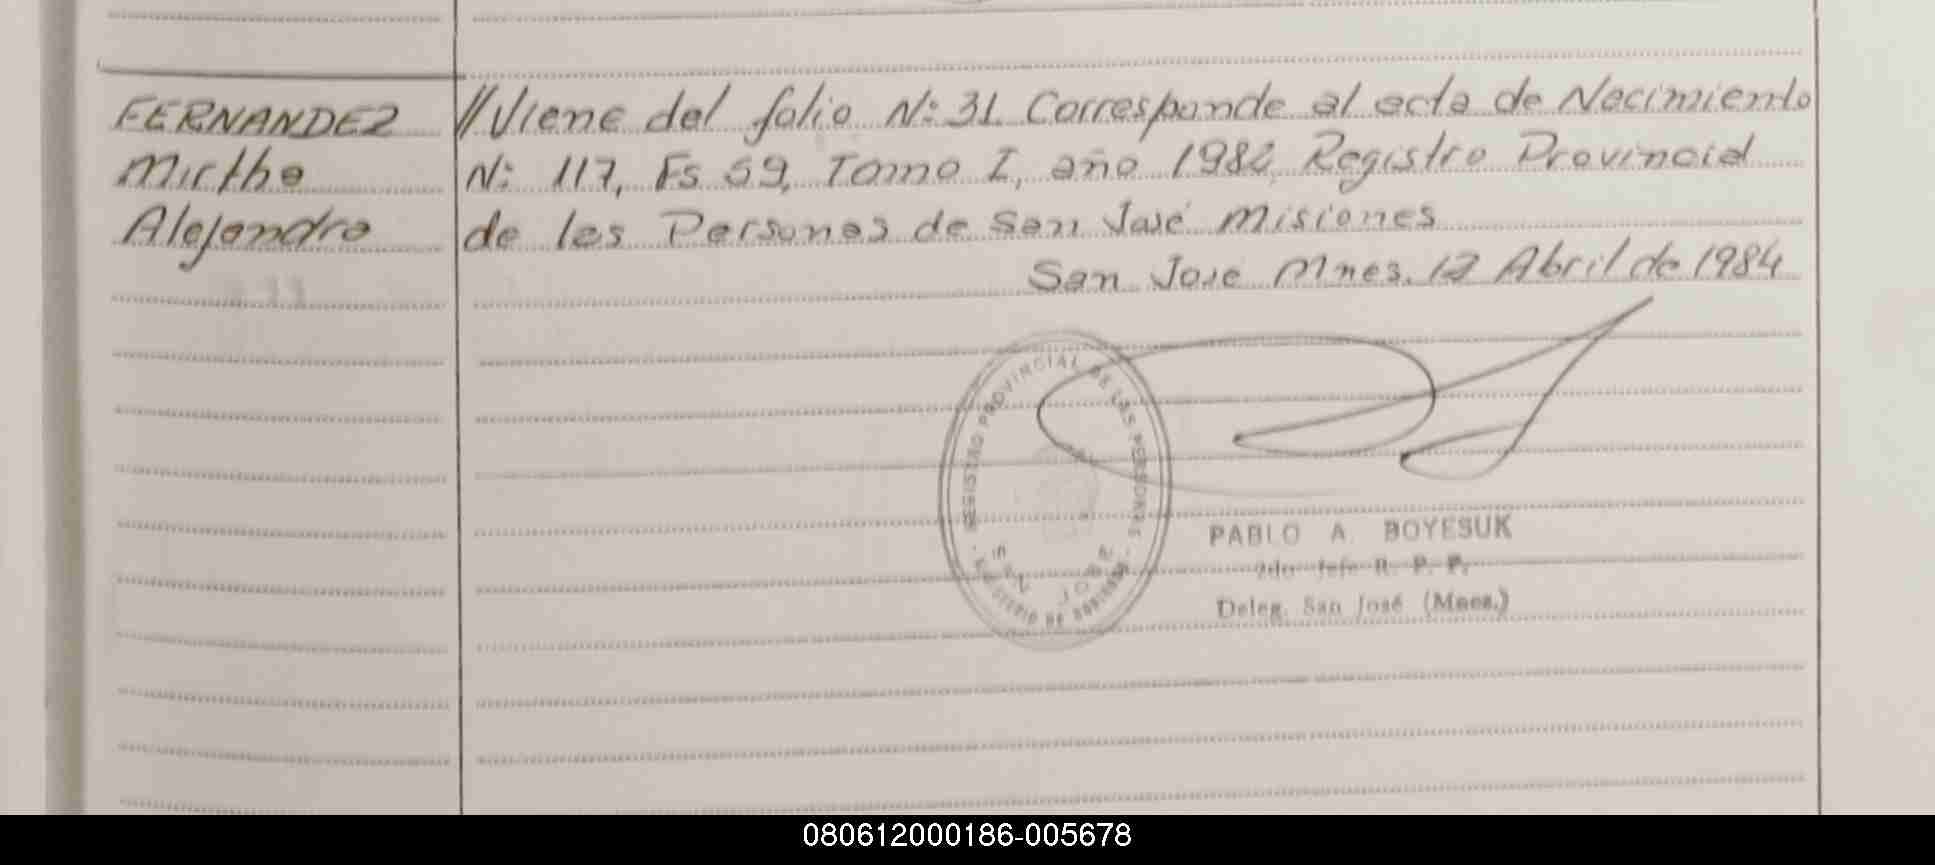 FERNANDEZ
Mirtha
Alejandra
//Viene del folio N: 31. Corresponde al acta de Nacimiento
N: 117, Fs 59, Tomo I, año 1982, Registro Provincial
de las Personas de San José Misiones
San Jose Mnes. 12 Abril de 1984
REGISTRO PROVINCIAL DE LAS PERSONAS
SAN JOSE
MINISTERIO DE GOBIERNO
PABLO A. BOYESUK
2do Jefe R. P. P.
Deleg. San José (Mnes.)
080612000186-005678